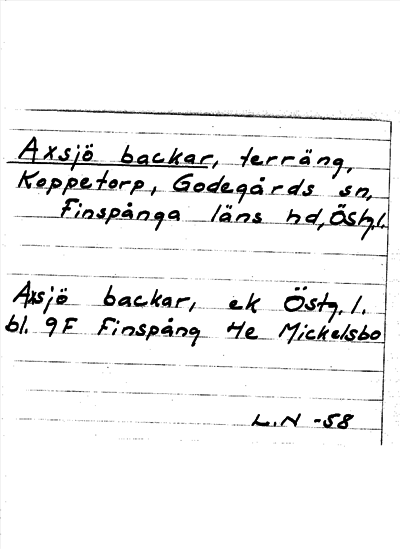 Axsjö backar, terräng,
Koppetorp, Godegårds sn,
Finspånga läns hd, Östg.l.
Axsjö backar, ek Östg. l.
bl. 9F Finspång 4e Mickelsbo
L.N -58